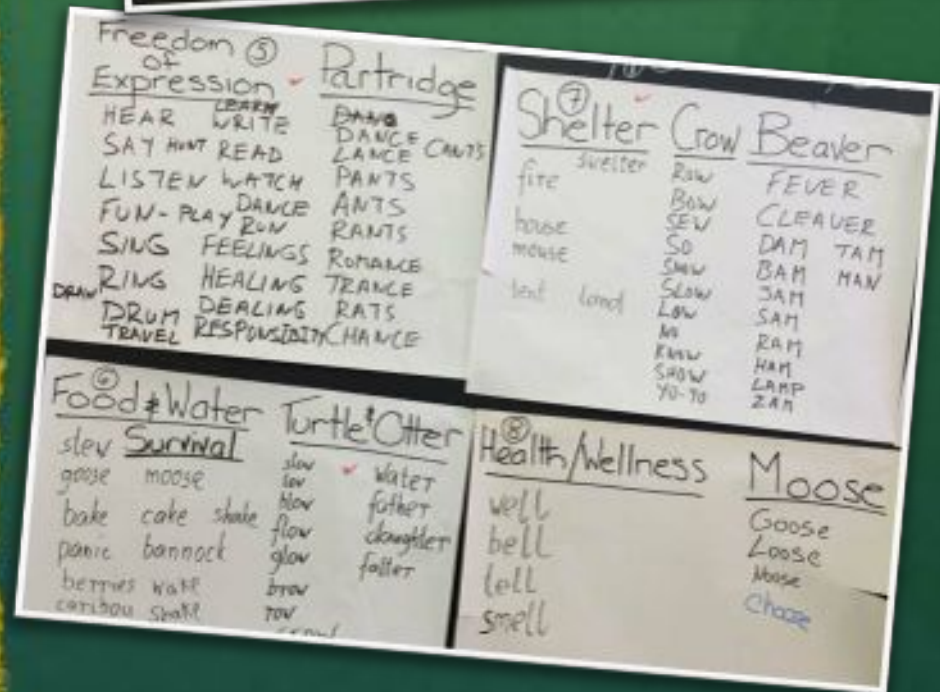 Freedom ⑤
of
Expression
HEAR LEARN
WRITE
SAY HUNT READ
LISTEN WATCH
FUN-PLAY DANCE
RUN
SING FEELINGS
RING HEALING
DRAW
DRUM DEALING
TRAVEL
Partridge
DANCE
LANCE CANTS
PANTS
ANTS
RANTS
ROMANCE
TRANCE
RATS
CHANCE
⑦
Shelter
shelter
fire
house
mouse
tent land
Crow
Row
Bow
SEW
SO
SLOW
LOW
NO
KNOW
SHOW
YO-YO
Beaver
FEVER
CLEAVER
DAM TAM
BAM MAN
JAM
SAM
RAM
HAM
LAMP
ZAM
⑥
Food & Water
Survival
goose moose
bake cake shake
panic bannock
berries wake
caribou shake
Turtle & Otter
slow water
low father
blow daughter
flow falter
glow
brow
row
⑧
Health/Wellness
well
bell
tell
smell
Moose
Goose
Loose
Noose
Choose